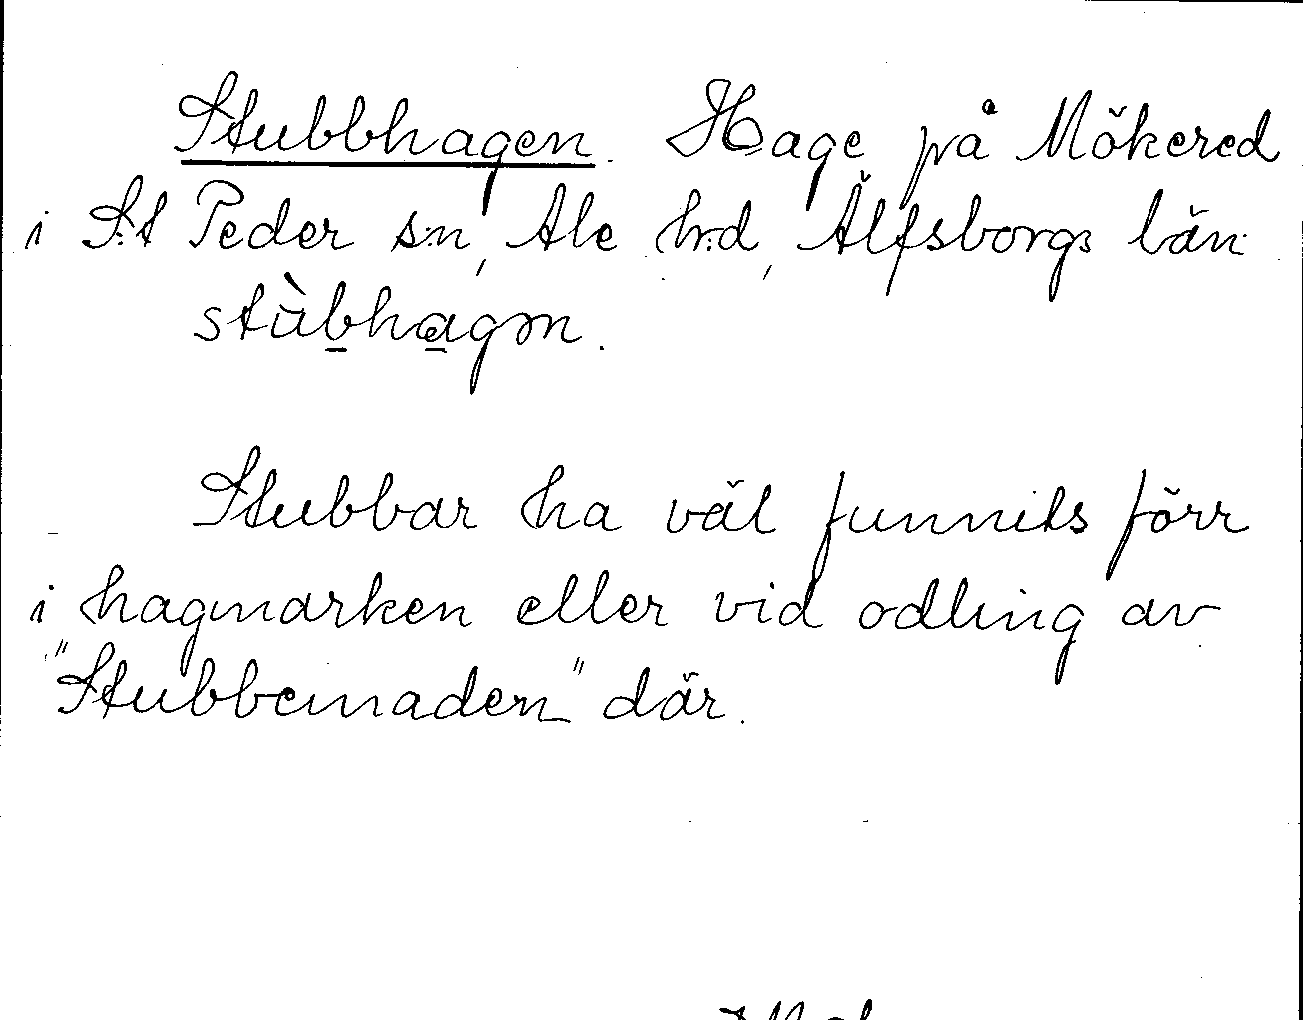 Stubbhagen. Hage på Mökered
i S:t Peder s:n, Ale h:d, Älfsborgs län
stùb̲ha̲gən.
Stubbar ha väl funnits förr
i hagmarken eller vid odling av
"Stubbemaden" där.